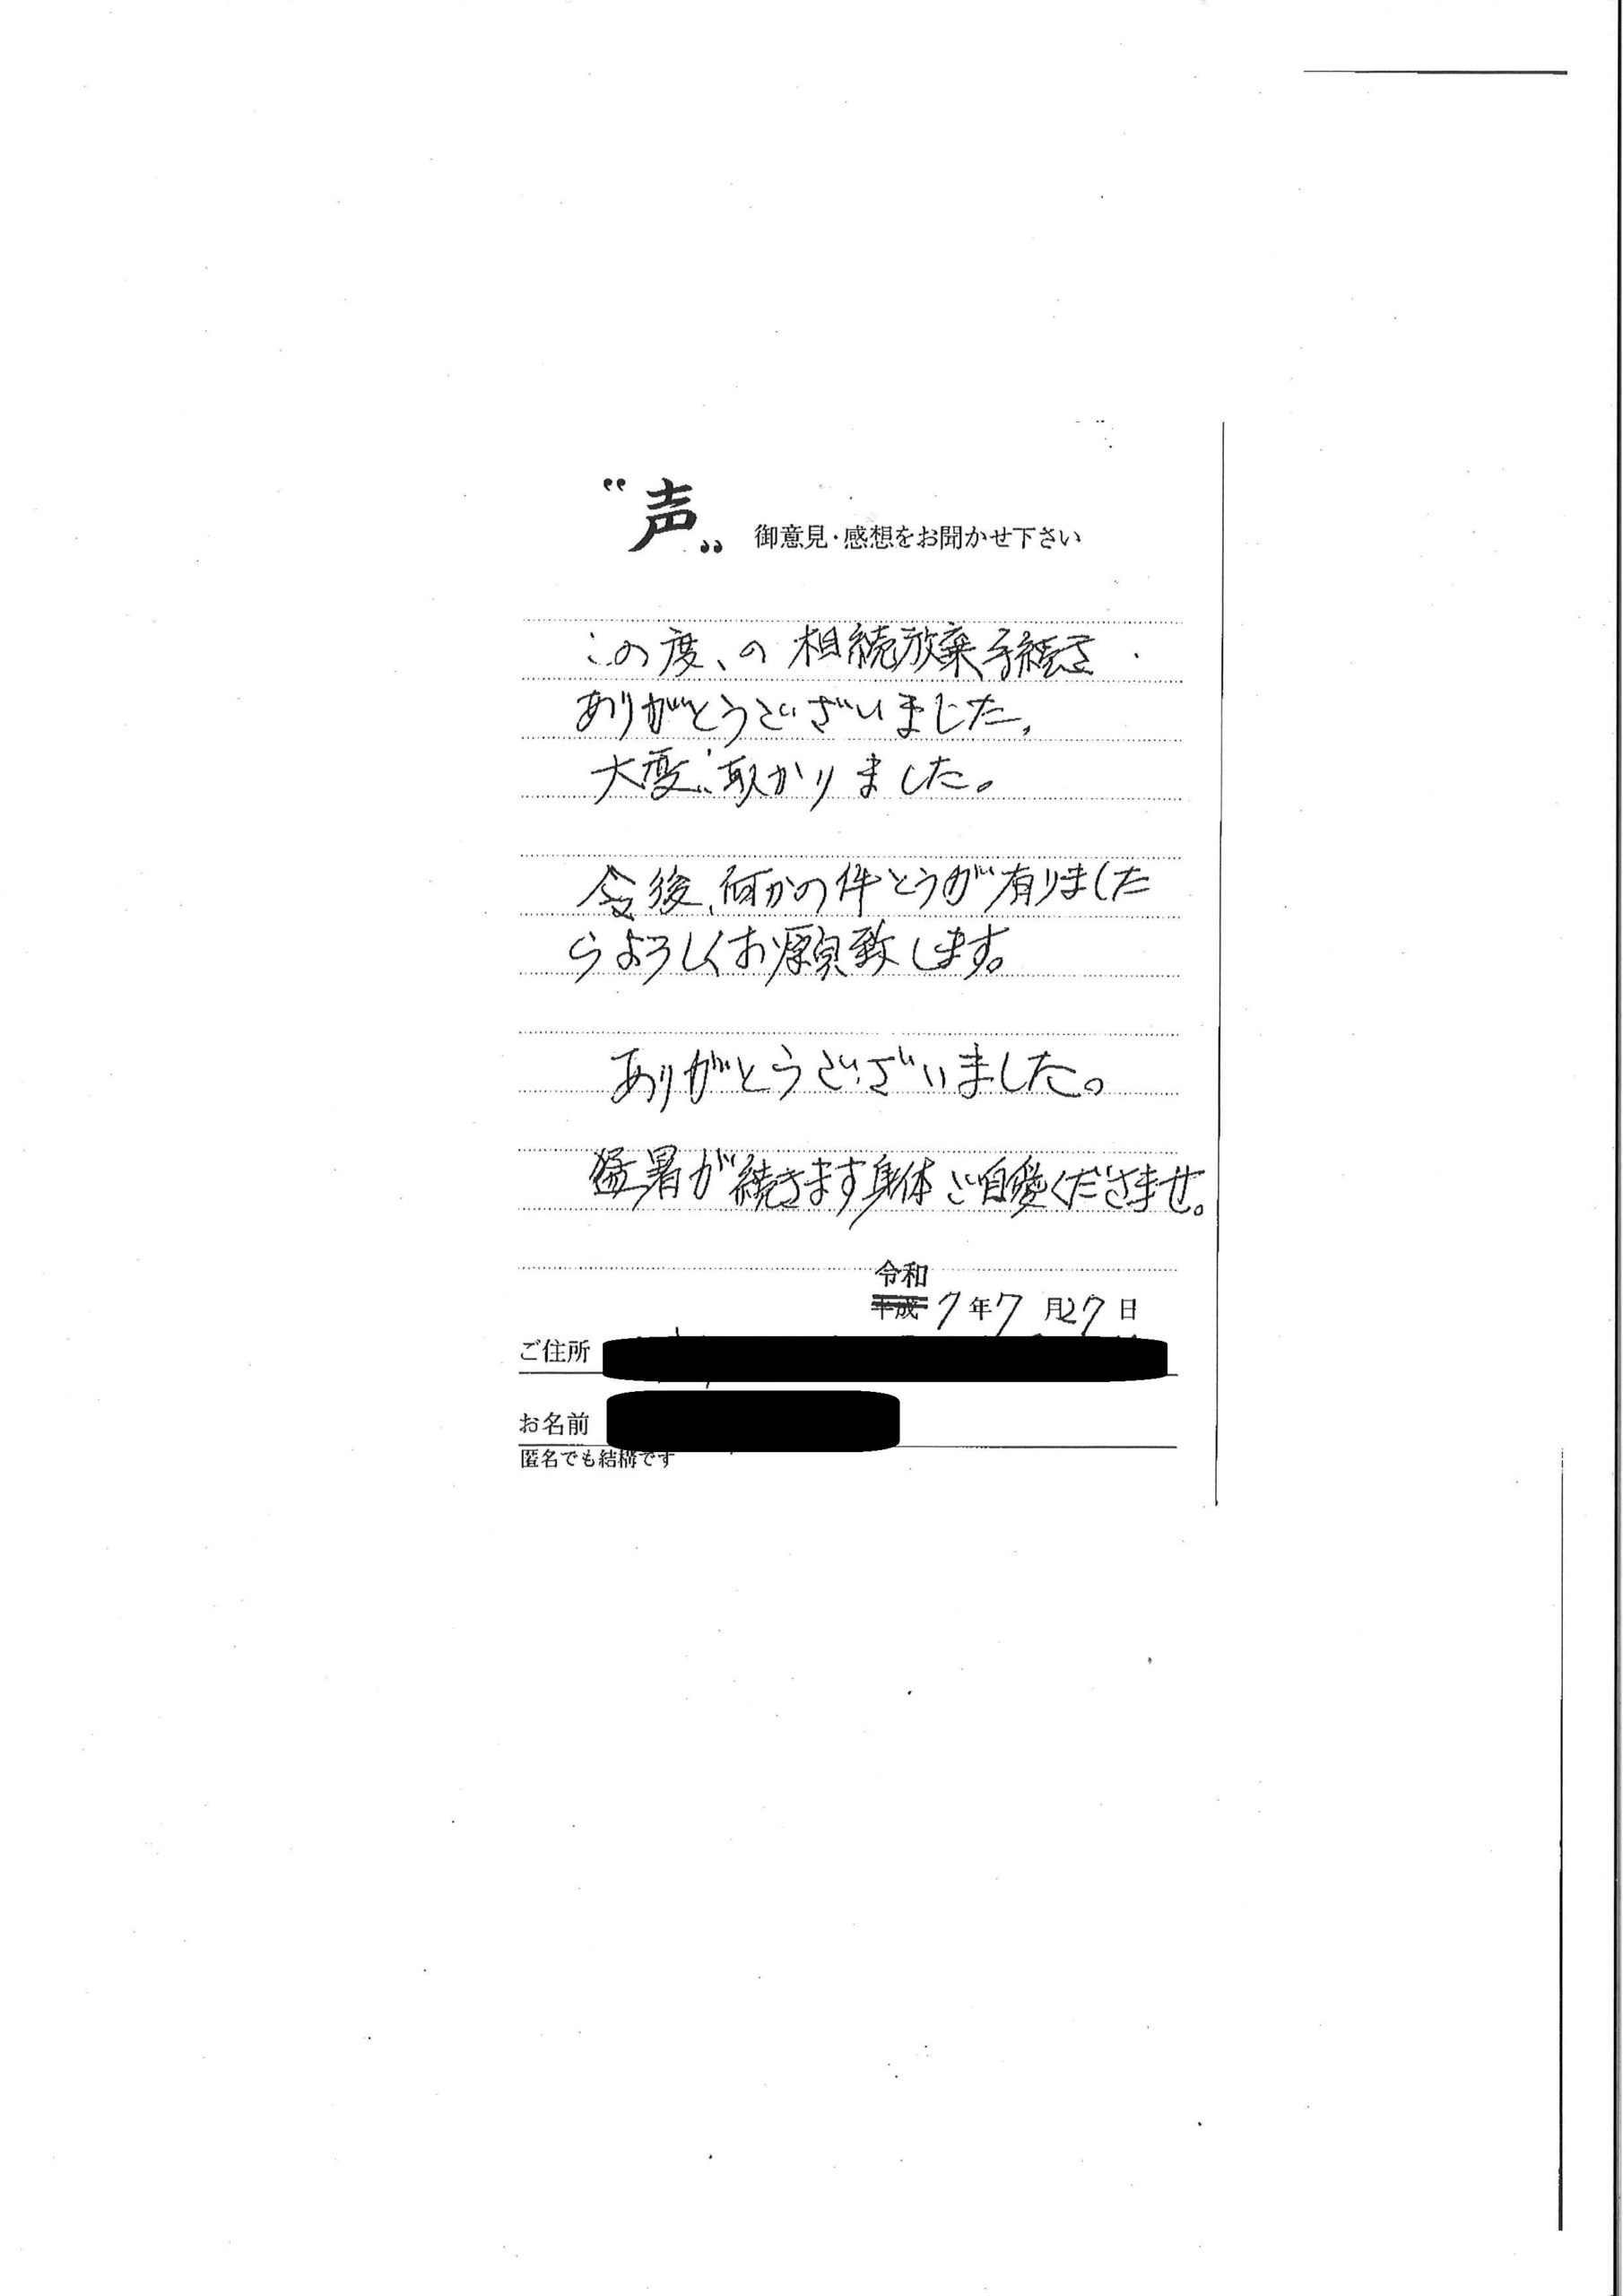 "声" 御意見・感想をお聞かせ下さい
この度、の相続放棄手続き
ありがとうございました。
大変、取かりました。
今後、何かの件とうが有りました
らよろしくお願致します。
ありがとうございました。
猛暑が続きます身体ご自愛くださませ。
令和
平成 7年7月27日
ご住所
お名前
匿名でも結構です